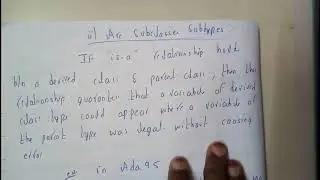 ii) Are Subclasses Subtypes
If "is-a" relationship holds
b/n a derived class & parent class, then the
relationship guarantees that a variable of derived
class type could appear where a variable of
the parent type was legal without causing
error
ex: in Ada 95